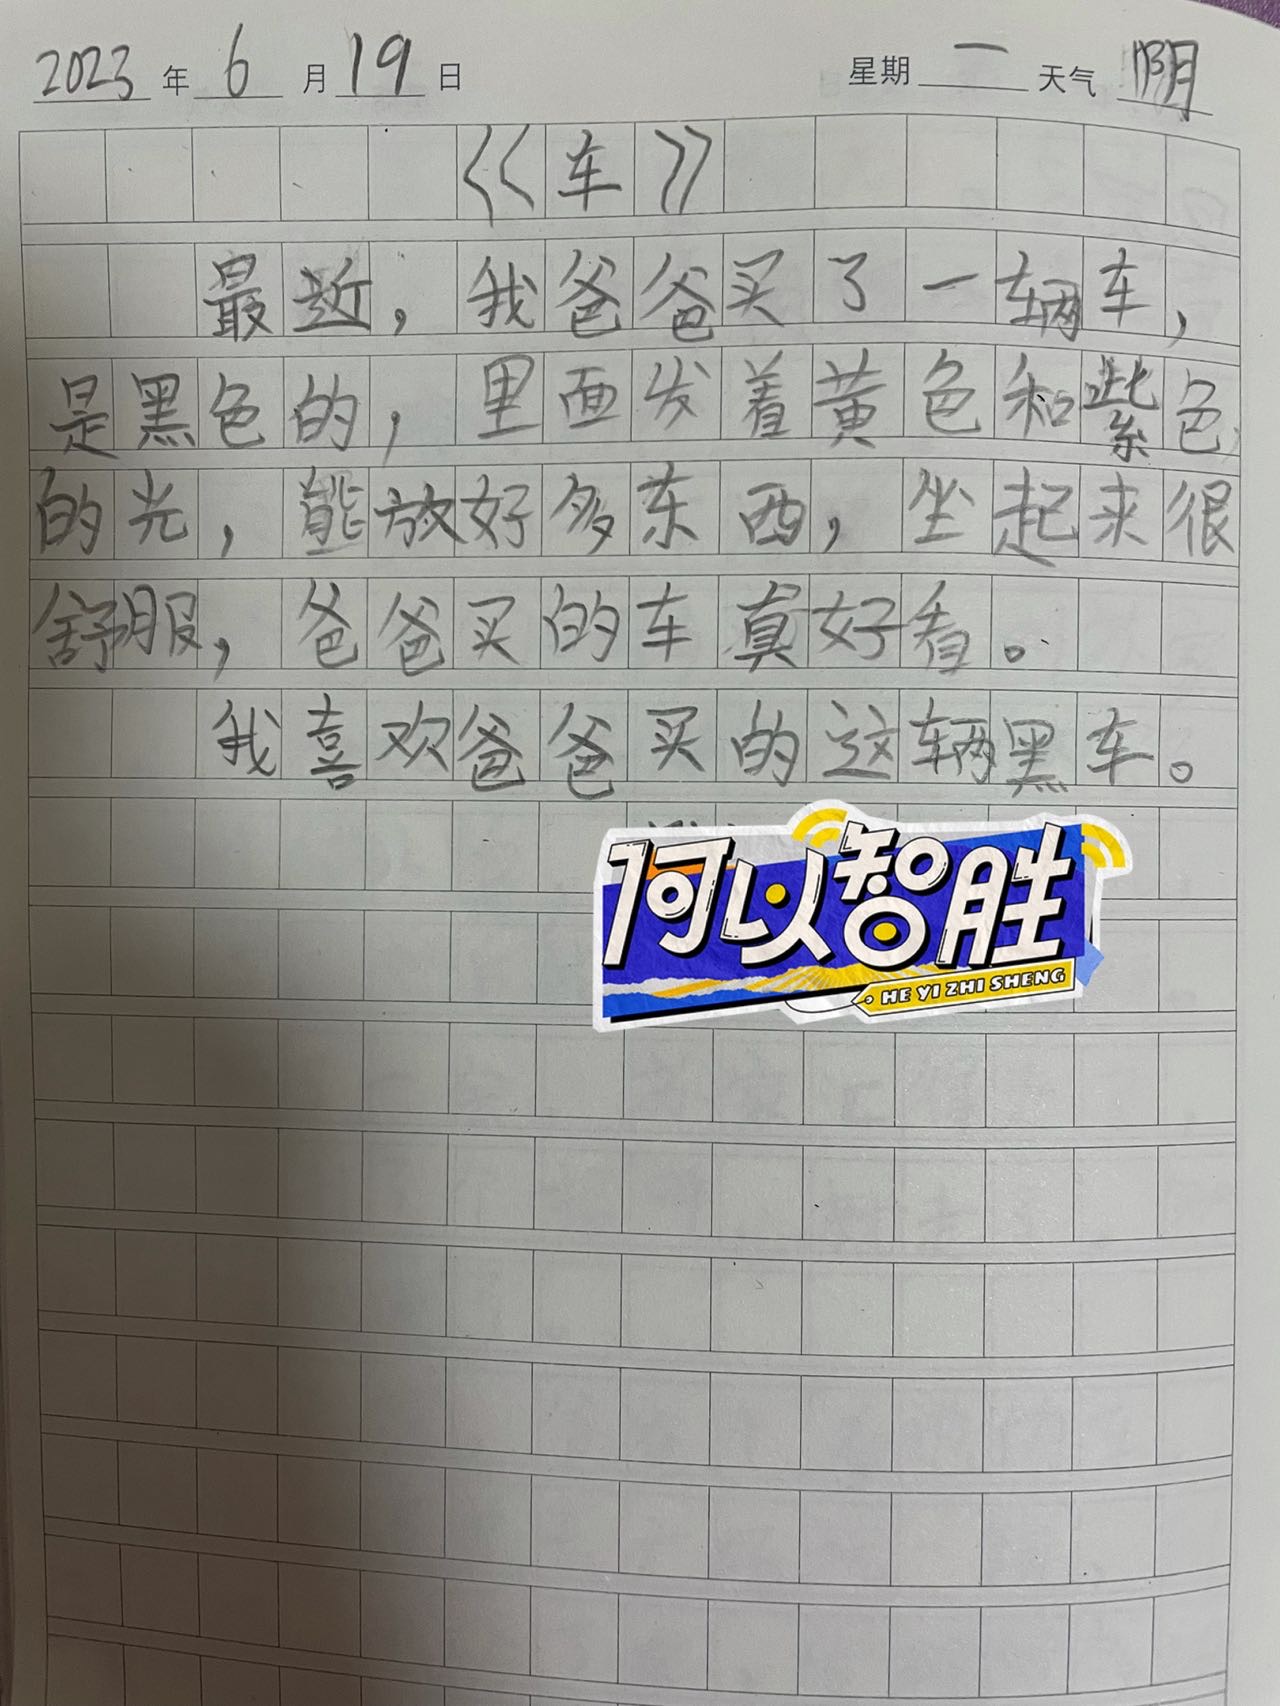 2023年6月19日 星期一 天气 阴
《车》
最近，我爸爸买了一辆车，
是黑色的，里面发着黄色和紫色
的光，能放好多东西，坐起来很
舒服，爸爸买的车真好看。
我喜欢爸爸买的这辆黑车。
何以智胜
HE YI ZHI SHENG